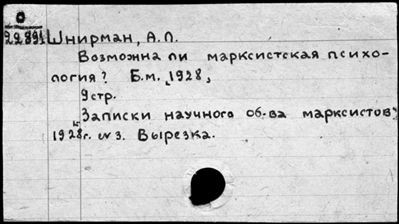 О
22891 Шнирман, А.Л.
Возможна ли марксистская психо-
логия? Б.м., 1928,
9стр.
"Записки научного об-ва марксистов"
1928г. №3. Вырезка.